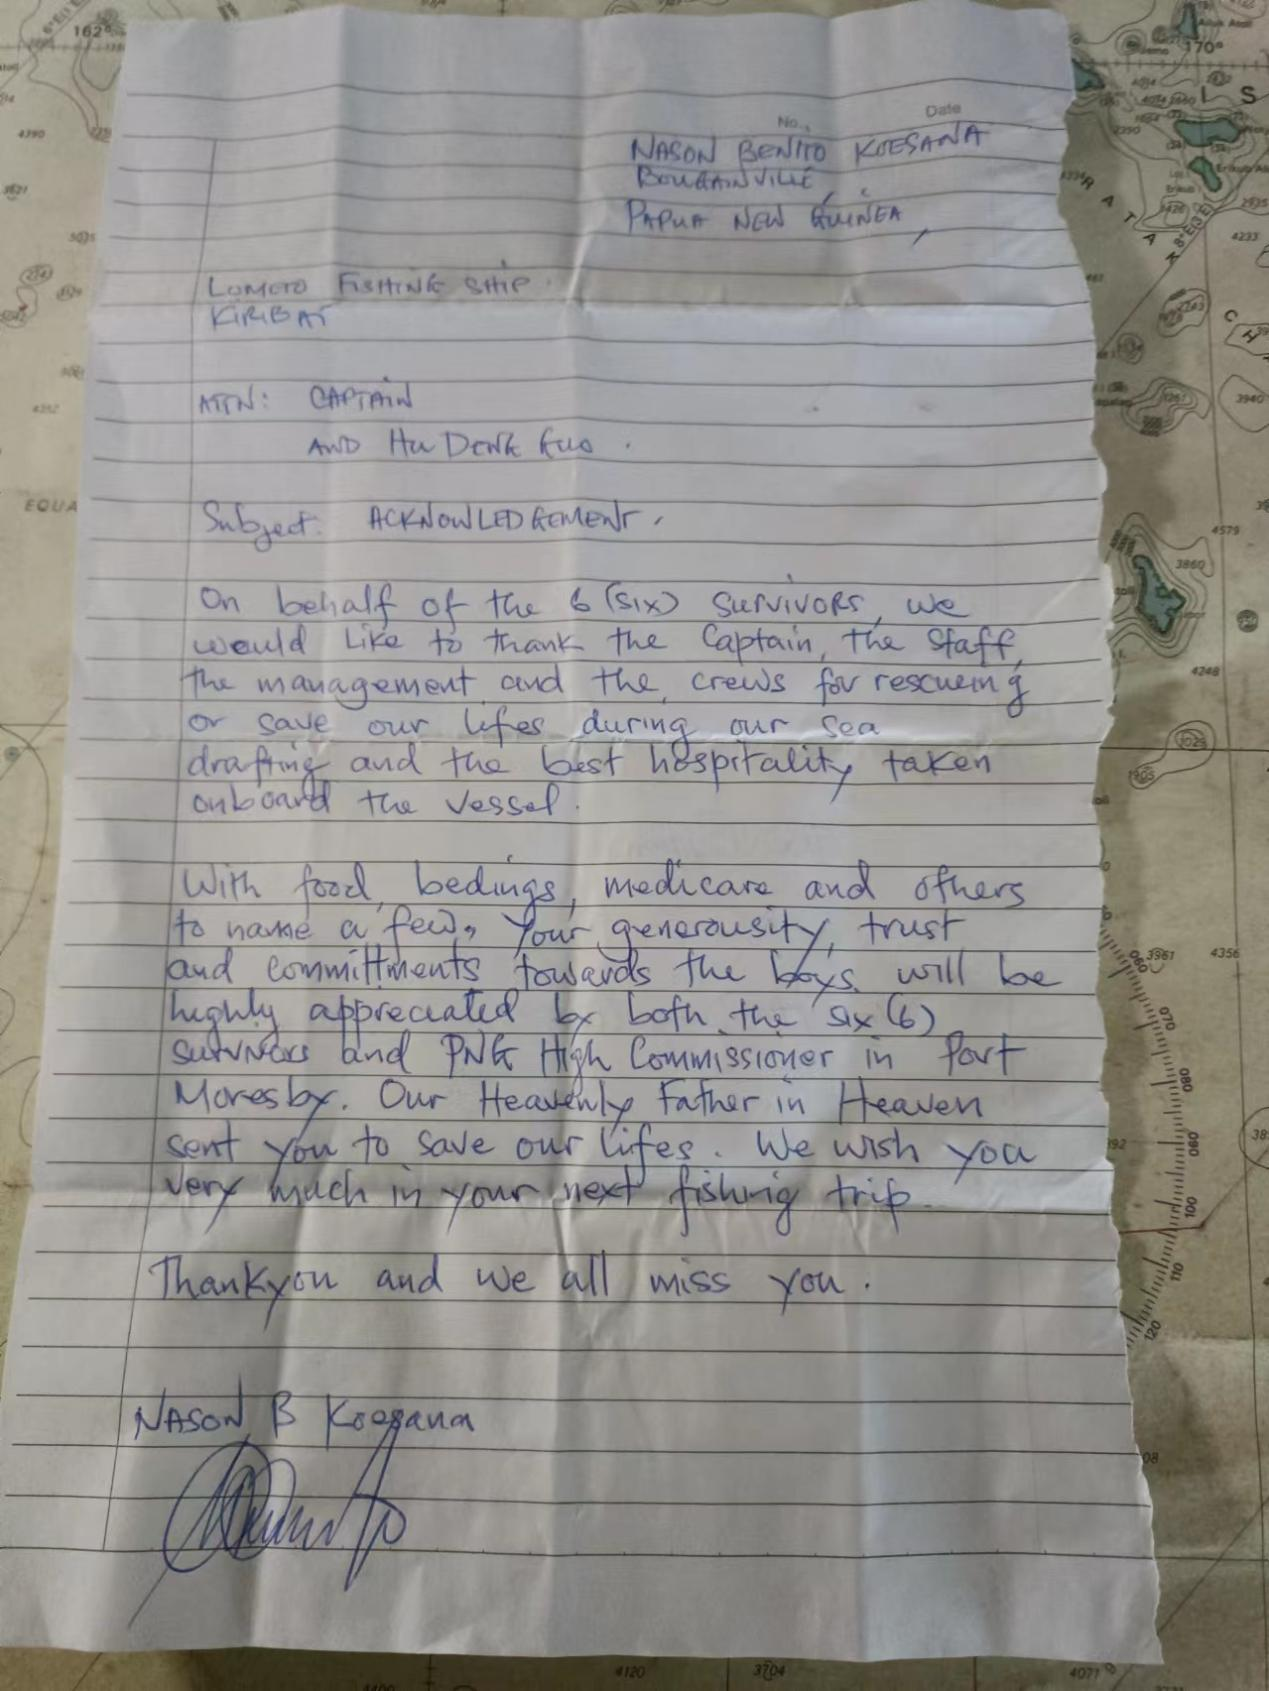 No.,
Date
NASON BENITO KOESANA
BOUGAINVILLE,
PAPUA NEW GUINEA,
LOMETO FISHING SHIP.
KIRIBAT
ATTN: CAPTAIN
AND HU DENG GUO.
Subject: ACKNOWLEDGEMENT.
On behalf of the 6 (six) survivors, we
would like to thank the Captain, the staff,
the management and the crews for rescueing
or save our lifes during our sea
drafting and the best hospitality taken
onboard the vessel.
With food, bedings, medicare and others
to name a few, Your generousity, trust
and committments towards the boys will be
highly appreciated by both the six (6)
survivors and PNG High Commissioner in Port
Moresby. Our Heavenly Father in Heaven
sent you to save our lifes. We wish you
very much in your next fishing trip.
Thankyou and we all miss you.
NASON B Koesana
162°
170°
4390
3821
5035
4352
EQUA
RATAK
I S
C H
4233
3940
4579
3860
4248
3961
4356
060
070
080
090
100
110
120
4120
3704
4071